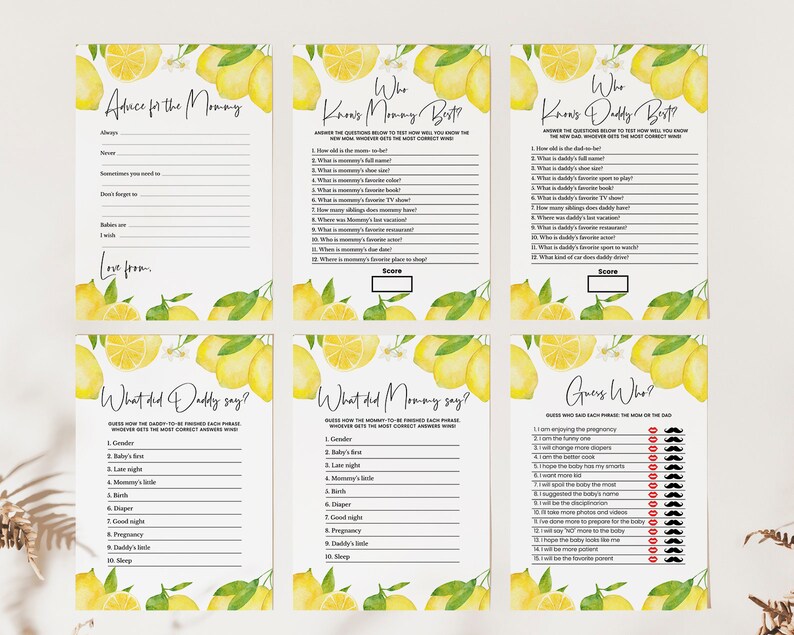 Advice for the Mommy
Always
Never
Sometimes you need to
Don't forget to
Babies are
I wish
Love from,
Who
Knows Mommy Best?
ANSWER THE QUESTIONS BELOW TO TEST HOW WELL YOU KNOW THE
NEW MOM. WHOEVER GETS THE MOST CORRECT WINS!
1. How old is the mom- to-be?
2. What is mommy's full name?
3. What is mommy's shoe size?
4. What is mommy's favorite color?
5. What is mommy's favorite book?
6. What is mommy's favorite TV show?
7. How many siblings does mommy have?
8. Where was Mommy's last vacation?
9. What is mommy's favorite restaurant?
10. Who is mommy's favorite actor?
11. When is mommy's due date?
12. Where is mommy's favorite place to shop?
Score
Who
Knows Daddy Best?
ANSWER THE QUESTIONS BELOW TO TEST HOW WELL YOU KNOW
THE NEW DAD. WHOEVER GETS THE MOST CORRECT WINS!
1. How old is the dad-to-be?
2. What is daddy's full name?
3. What is daddy's shoe size?
4. What is daddy's favorite sport to play?
5. What is daddy's favorite book?
6. What is daddy's favorite TV show?
7. How many siblings does daddy have?
8. Where was daddy's last vacation?
9. What is daddy's favorite restaurant?
10. Who is daddy's favorite actor?
11. What is daddy's favorite sport to watch?
12. What kind of car does daddy drive?
Score
What did Daddy say?
GUESS HOW THE DADDY-TO-BE FINISHED EACH PHRASE.
WHOEVER GETS THE MOST CORRECT ANSWERS WINS!
1. Gender
2. Baby's first
3. Late night
4. Mommy's little
5. Birth
6. Diaper
7. Good night
8. Pregnancy
9. Daddy's little
10. Sleep
What did Mommy say?
GUESS HOW THE MOMMY-TO-BE FINISHED EACH PHRASE.
WHOEVER GETS THE MOST CORRECT ANSWERS WINS!
1. Gender
2. Baby's first
3. Late night
4. Mommy's little
5. Birth
6. Diaper
7. Good night
8. Pregnancy
9. Daddy's little
10. Sleep
Guess Who?
GUESS WHO SAID EACH PHRASE: THE MOM OR THE DAD
1. I am enjoying the pregnancy
2. I am the funny one
3. I will change more diapers
4. I am the better cook
5. I hope the baby has my smarts
6. I want more kid
7. I will spoil the baby the most
8. I suggested the baby's name
9. I will be the disciplinarian
10. I'll take more photos and videos
11. I've done more to prepare for the baby
12. I will say "NO" more to the baby
13. I hope the baby looks like me
14. I will be more patient
15. I will be the favorite parent